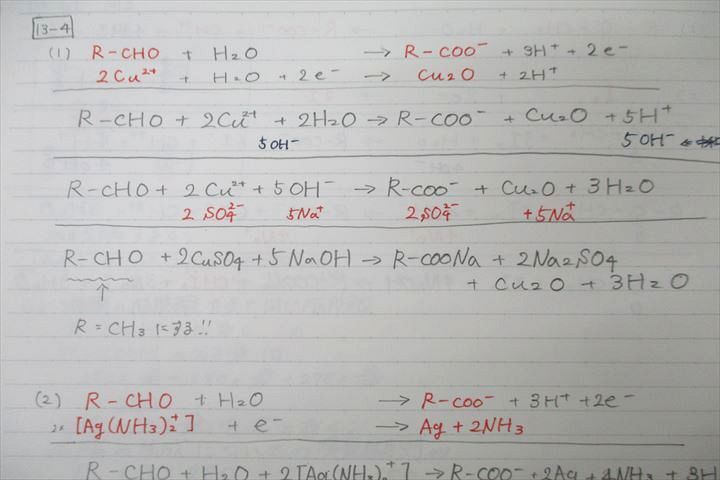 13-4
(1) R-CHO + H2O → R-COO⁻ + 3H⁺ + 2e⁻
2Cu²⁺ + H2O + 2e⁻ → Cu2O + 2H⁺
R-CHO + 2Cu²⁺ + 2H2O → R-COO⁻ + Cu2O + 5H⁺
5OH⁻ 5OH⁻
R-CHO + 2Cu²⁺ + 5OH⁻ → R-COO⁻ + Cu2O + 3H2O
2SO4²⁻ 5Na⁺ 2SO4²⁻ +5Na⁺
R-CHO + 2CuSO4 + 5NaOH → R-COONa + 2Na2SO4
+ Cu2O + 3H2O
↑
R = CH3 にする!!
(2) R-CHO + H2O → R-COO⁻ + 3H⁺ + 2e⁻
2× [Ag(NH3)2⁺] + e⁻ → Ag + 2NH3
R-CHO + H2O + 2[Ag(NH3)2⁺] → R-COO⁻ + 2Ag + 4NH3 + 3H